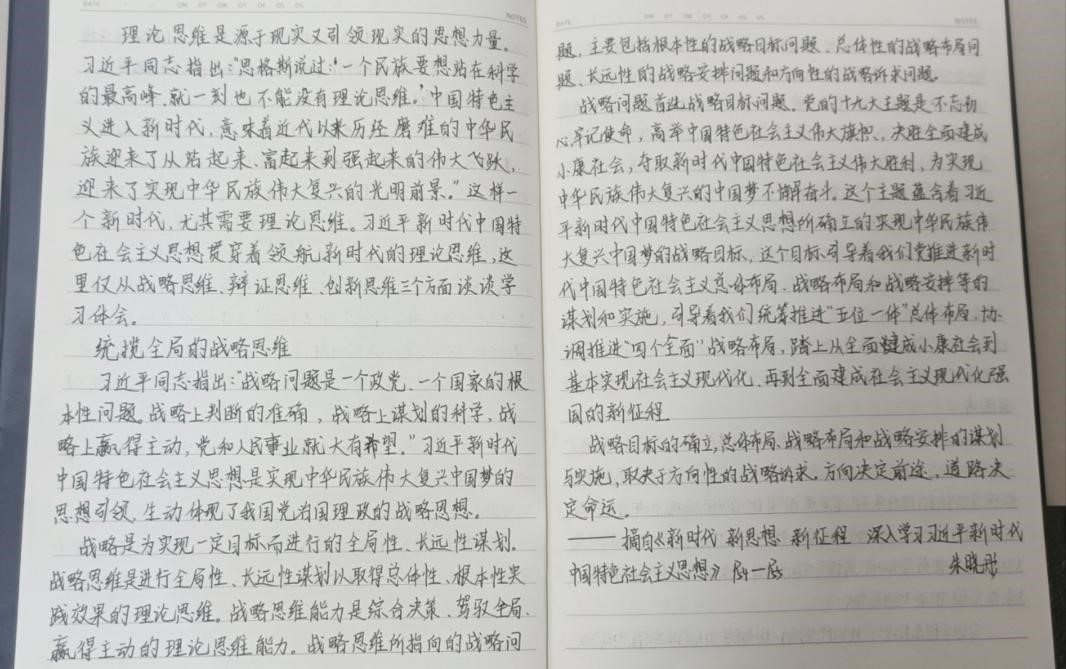 DATE
NOTES
理论思维是源于现实又引领现实的思想力量。
习近平同志指出:“恩格斯说过:‘一个民族要想站在科学
的最高峰,就一刻也不能没有理论思维。’中国特色主
义进入新时代,意味着近代以来历经磨难的中华民
族迎来了从站起来、富起来到强起来的伟大飞跃,
迎来了实现中华民族伟大复兴的光明前景。”这样一
个新时代,尤其需要理论思维。习近平新时代中国特
色社会主义思想贯穿着领航新时代的理论思维,这
里仅从战略思维、辩证思维、创新思维三个方面谈谈学
习体会。
统揽全局的战略思维
习近平同志指出:“战略问题是一个政党、一个国家的根
本性问题。战略上判断的准确,战略上谋划的科学,战
略上赢得主动,党和人民事业就大有希望。”习近平新时代
中国特色社会主义思想是实现中华民族伟大复兴中国梦的
思想引领,生动体现了我国党治国理政的战略思想。
战略是为实现一定目标而进行的全局性、长远性谋划。
战略思维是进行全局性、长远性谋划以取得总体性、根本性实
践效果的理论思维。战略思维能力是综合决策、驾驭全局、
赢得主动的理论思维能力。战略思维所指向的战略问
DATE
NOTES
题,主要包括根本性的战略目标问题、总体性的战略布局问
题、长远性的战略安排问题和方向性的战略诉求问题。
战略问题首先战略目标问题。党的十九大主题是:不忘初
心,牢记使命,高举中国特色社会主义伟大旗帜,决胜全面建成
小康社会,夺取新时代中国特色社会主义伟大胜利,为实现
中华民族伟大复兴的中国梦不懈奋斗。这个主题蕴含着习近
平新时代中国特色社会主义思想所确立的实现中华民族伟
大复兴中国梦的战略目标。这个目标引导着我们党推进新时
代中国特色社会主义总体布局、战略布局和战略安排等的
谋划和实施,引导着我们统筹推进“五位一体”总体布局、协
调推进“四个全面”战略布局,踏上从全面建成小康社会到
基本实现社会主义现代化、再到全面建成社会主义现代化强
国的新征程
战略目标的确立,总体布局、战略布局和战略安排的谋划
与实施,取决于方向性的战略诉求。方向决定前途,道路决
定命运。
——摘自《新时代 新思想 新征程 深入学习习近平新时代
中国特色社会主义思想》
朱晓彤